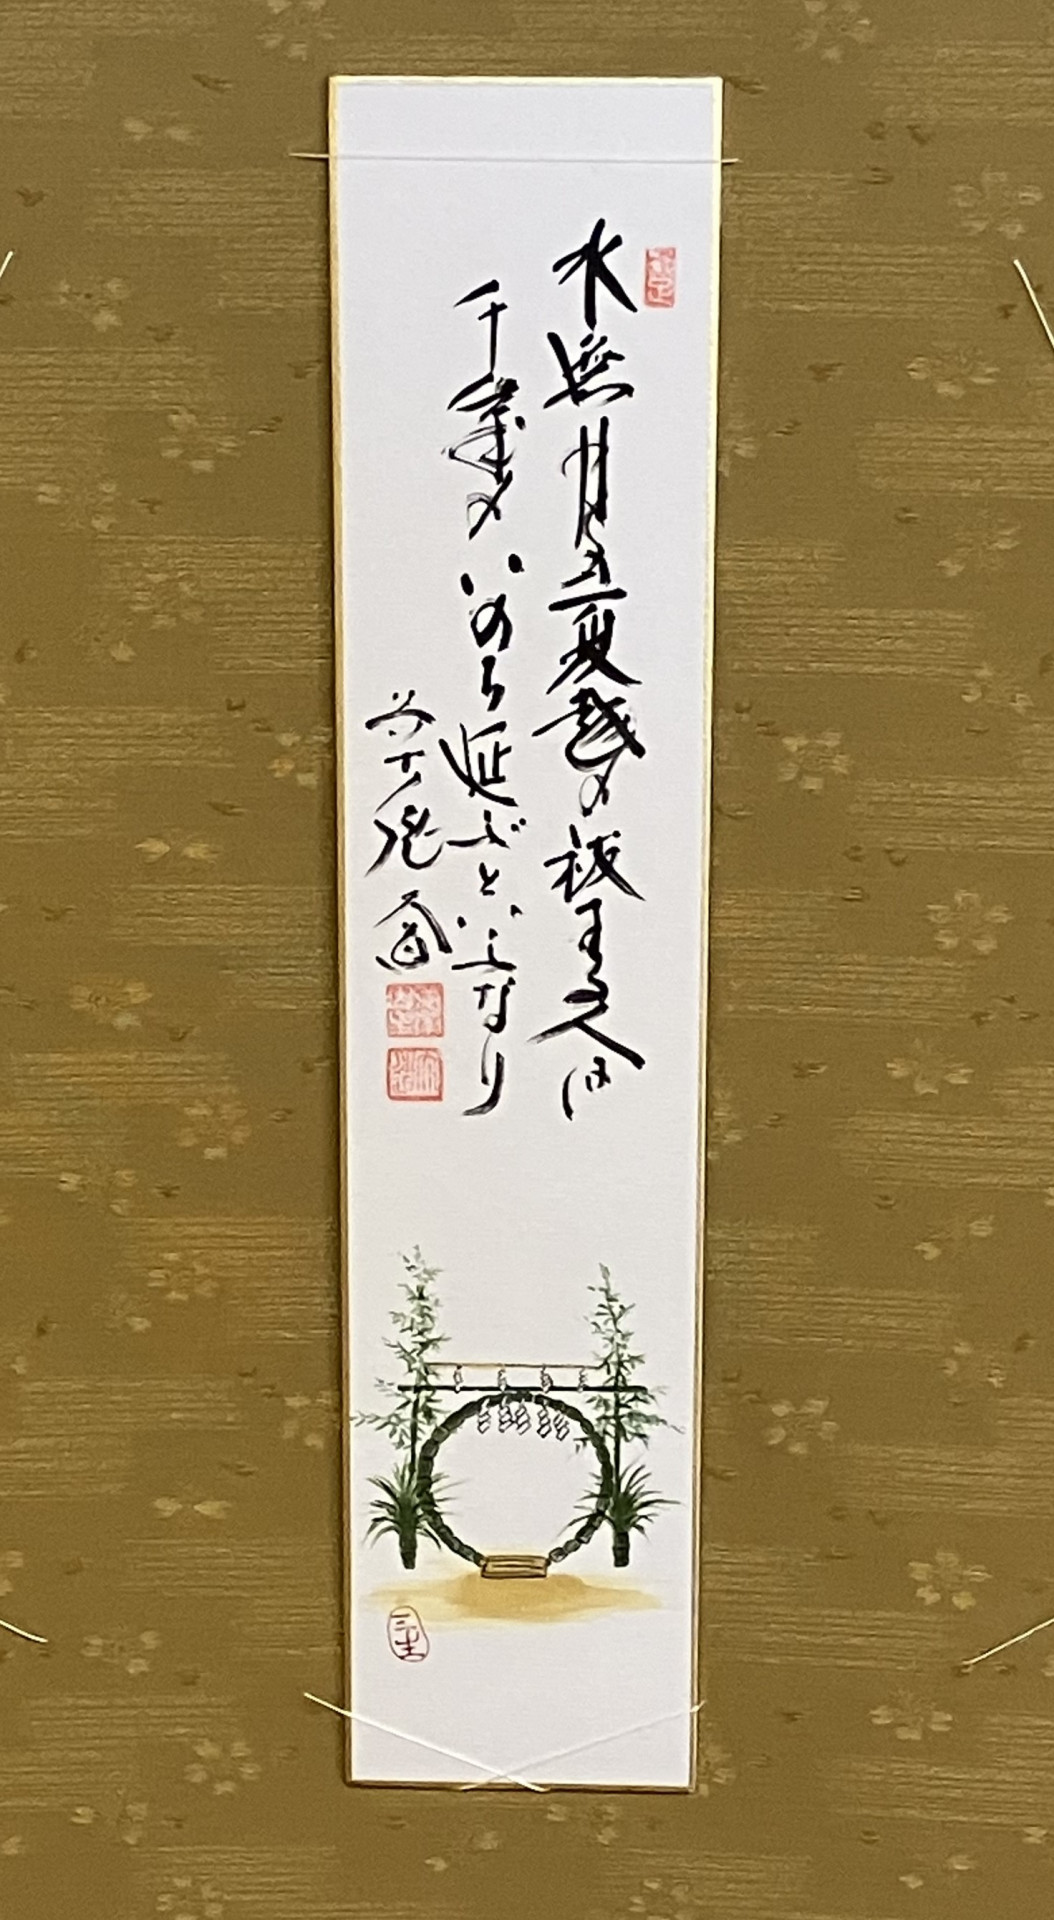 水無月の夏越の祓する人は
千歳のいのち延ぶといふなり